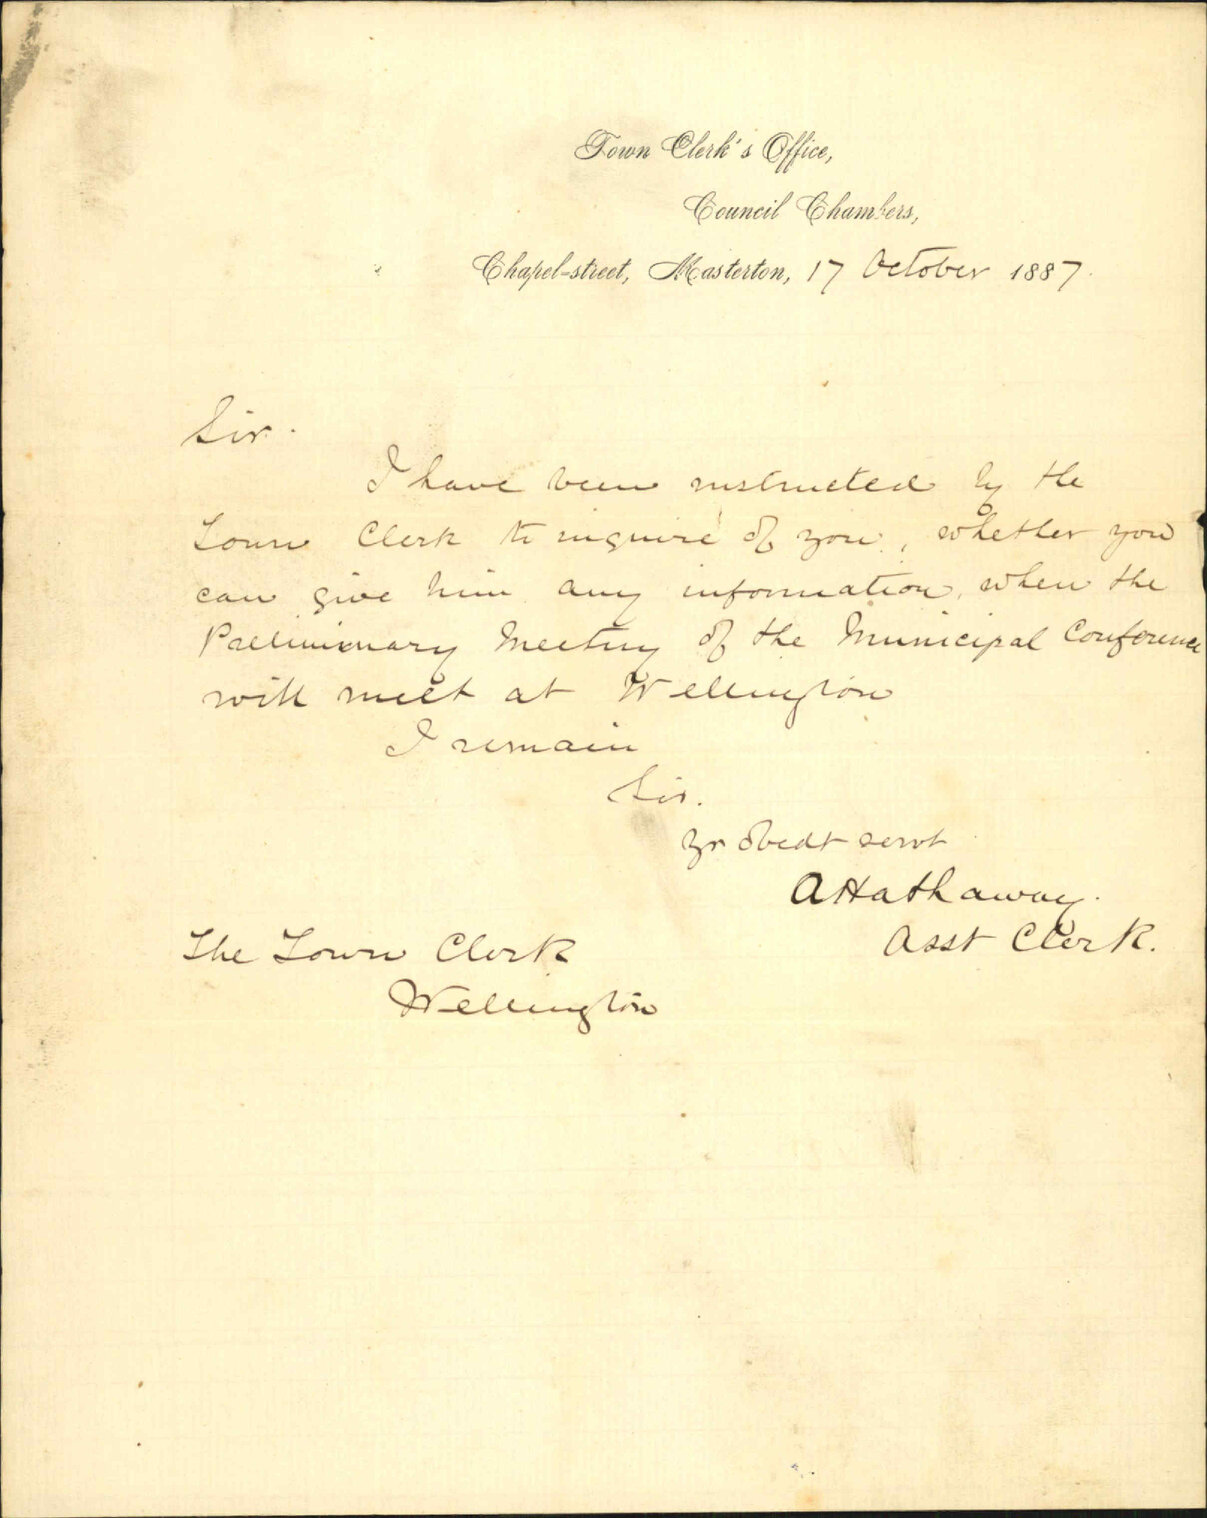 Town Clerk's Office,
Council Chambers,
Chapel-street, Masterton, 17 October 1887.
Sir.
I have been instructed by the
Town Clerk to inquire of you, whether you
can give him any information, when the
Preliminary Meeting of the Municipal Conference
will meet at Wellington
I remain
Sir.
yr obedt servt
A Hathaway.
Asst Clerk.
The Town Clerk
Wellington